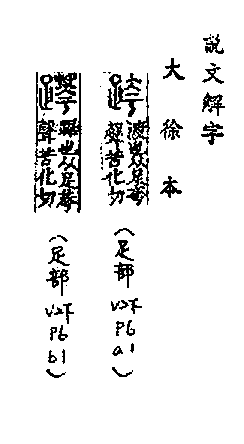 說文解字
大徐本
渡也从足夸
聲苦化切
(足部 V2下 P6 a1)
踞也从足
聲苦化切
(足部 V2下 P6 b1)